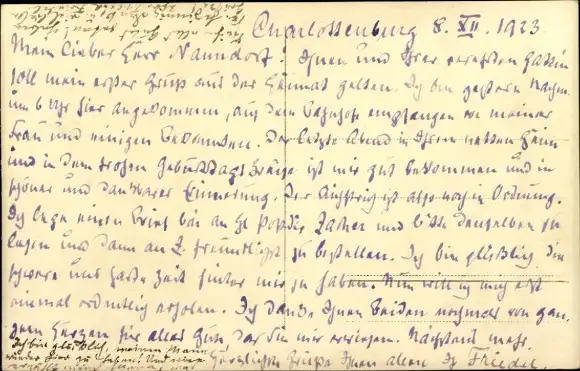 Charlottenburg 8. XII. 1923.
Mein lieber Herr Nanndorf. Ihnen und Ihrer verehrten Gattin
soll mein erster Gruß aus der Heimat gelten. Ich bin gestern Nachm.
um 6 Uhr hier angekommen, auf dem Bahnhofe empfangen von meiner
Frau und einigen Bekannten. Der letzte Abend in Ihrem netten Heim
und in dem frohen Geburtstagskreise ist mir gut bekommen und in
schöner und dankbarer Erinnerung. Der ist also noch in Ordnung.
Ich lege einen Brief bei an Hl und bitte denselben zu
lesen und dann an Z. freundlichst zu bestellen. Ich bin glücklich, die
schwere und harte Zeit hinter mir zu haben. Nun will ich mich erst
einmal ordentlich erholen. Ich danke Ihnen beiden nochmals von gan-
zem Herzen für alles Gute, das Sie mir erwiesen. Nächstens mehr.
Herzliche Grüße Ihnen allen Ihr Friedel.
Ich bin glücklich, meinen Mann
wieder hier zu haben!